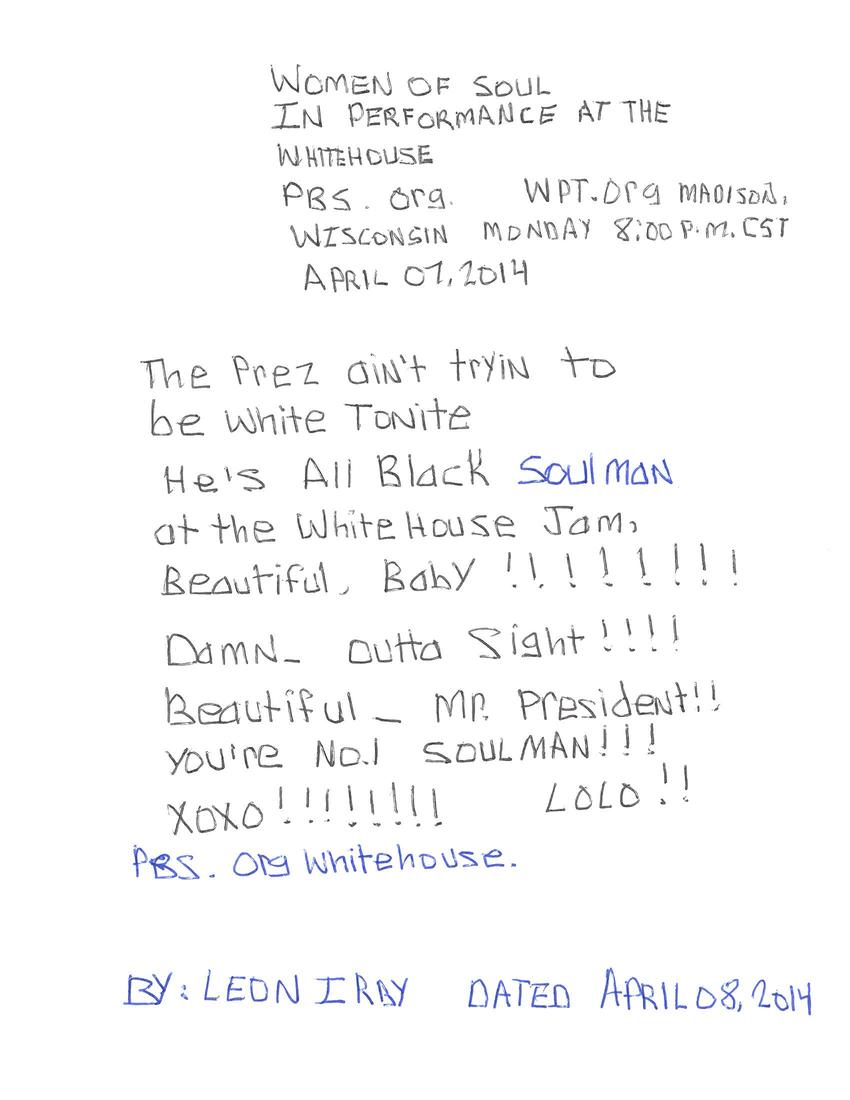 WOMEN OF SOUL
IN PERFORMANCE AT THE
WHITEHOUSE
PBS. Org. WPT.Org MADISON,
WISCONSIN MONDAY 8:00 P.M. CST
APRIL 07, 2014
The Prez ain't tryin to
be White Tonite
He's All Black Soul man
at the White House Jam,
Beautiful, Baby !!!!!!!!
Damn_ outta Sight !!!!
Beautiful _ Mr. President!!
you're No.1 SOUL MAN!!!
XOXO !!!!!!!! LOLO !!
PBS. Org Whitehouse.
BY: LEON I RAY DATED APRIL 08, 2014